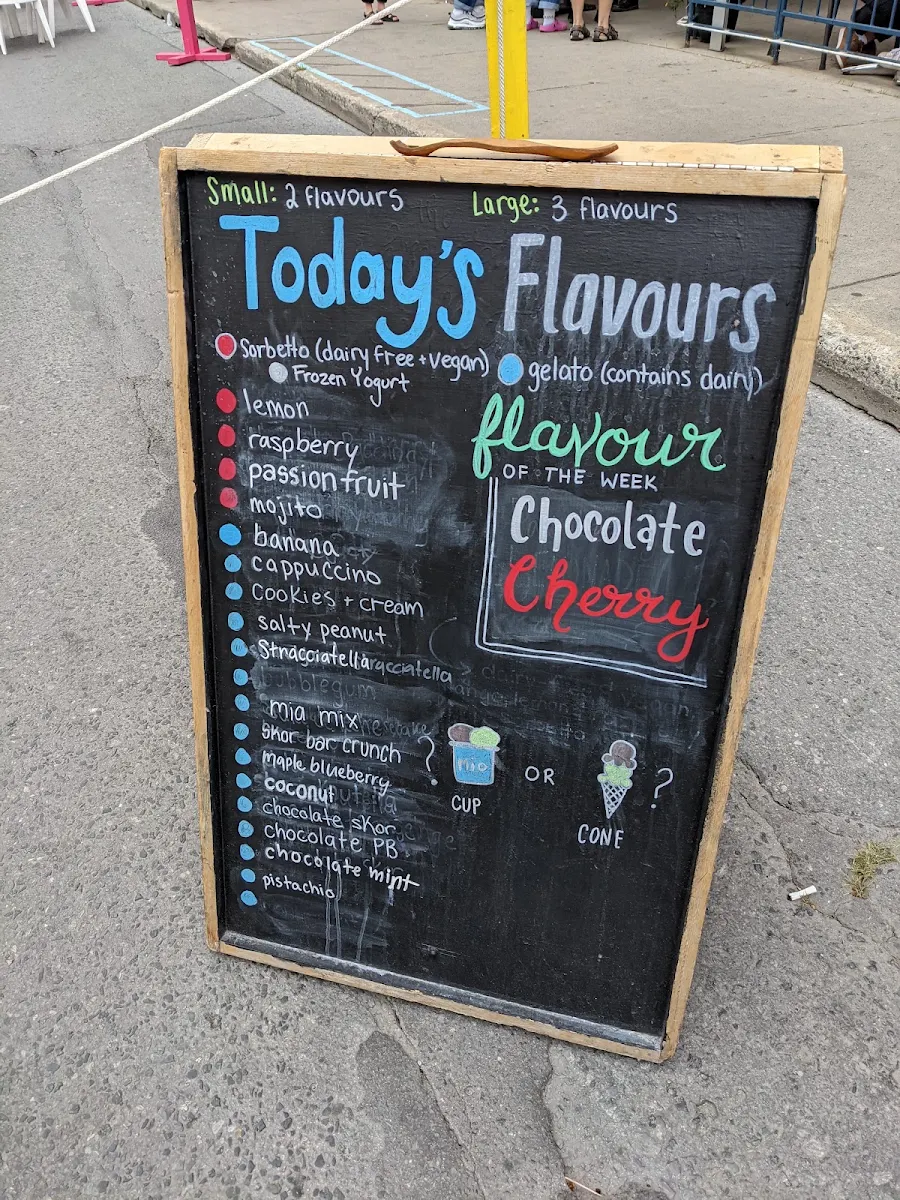 Small: 2 flavours Large: 3 flavours
Today's Flavours
Sorbetto (dairy free + vegan) gelato (contains dairy)
Frozen Yogurt
lemon
raspberry
passionfruit
mojito
banana
cappuccino
cookies + cream
salty peanut
Stracciatella
bubblegum
mia mix
skor bar crunch
maple blueberry
coconut
chocolate skor
chocolate PB
chocolate mint
pistachio
flavour
OF THE WEEK
Chocolate
Cherry
? Mio OR ?
CUP
CONE